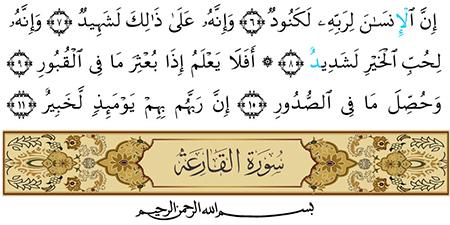 إِنَّ ٱلْإِنسَـٰنَ لِرَبِّهِۦ لَكَنُودٌ ﴿٦﴾ وَإِنَّهُۥ عَلَىٰ ذَٰلِكَ لَشَهِيدٌ ﴿٧﴾ وَإِنَّهُۥ
لِحُبِّ ٱلْخَيْرِ لَشَدِيدٌ ﴿٨﴾ ۞ أَفَلَا يَعْلَمُ إِذَا بُعْثِرَ مَا فِى ٱلْقُبُورِ ﴿٩﴾
وَحُصِّلَ مَا فِى ٱلصُّدُورِ ﴿١٠﴾ إِنَّ رَبَّهُم بِهِمْ يَوْمَئِذٍ لَّخَبِيرٌۢ ﴿١١﴾
سُورَةُ القَارِعَة
بسم الله الرحمن الرحيم